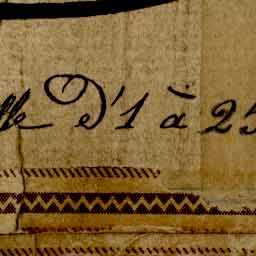 lle D'1 à 25